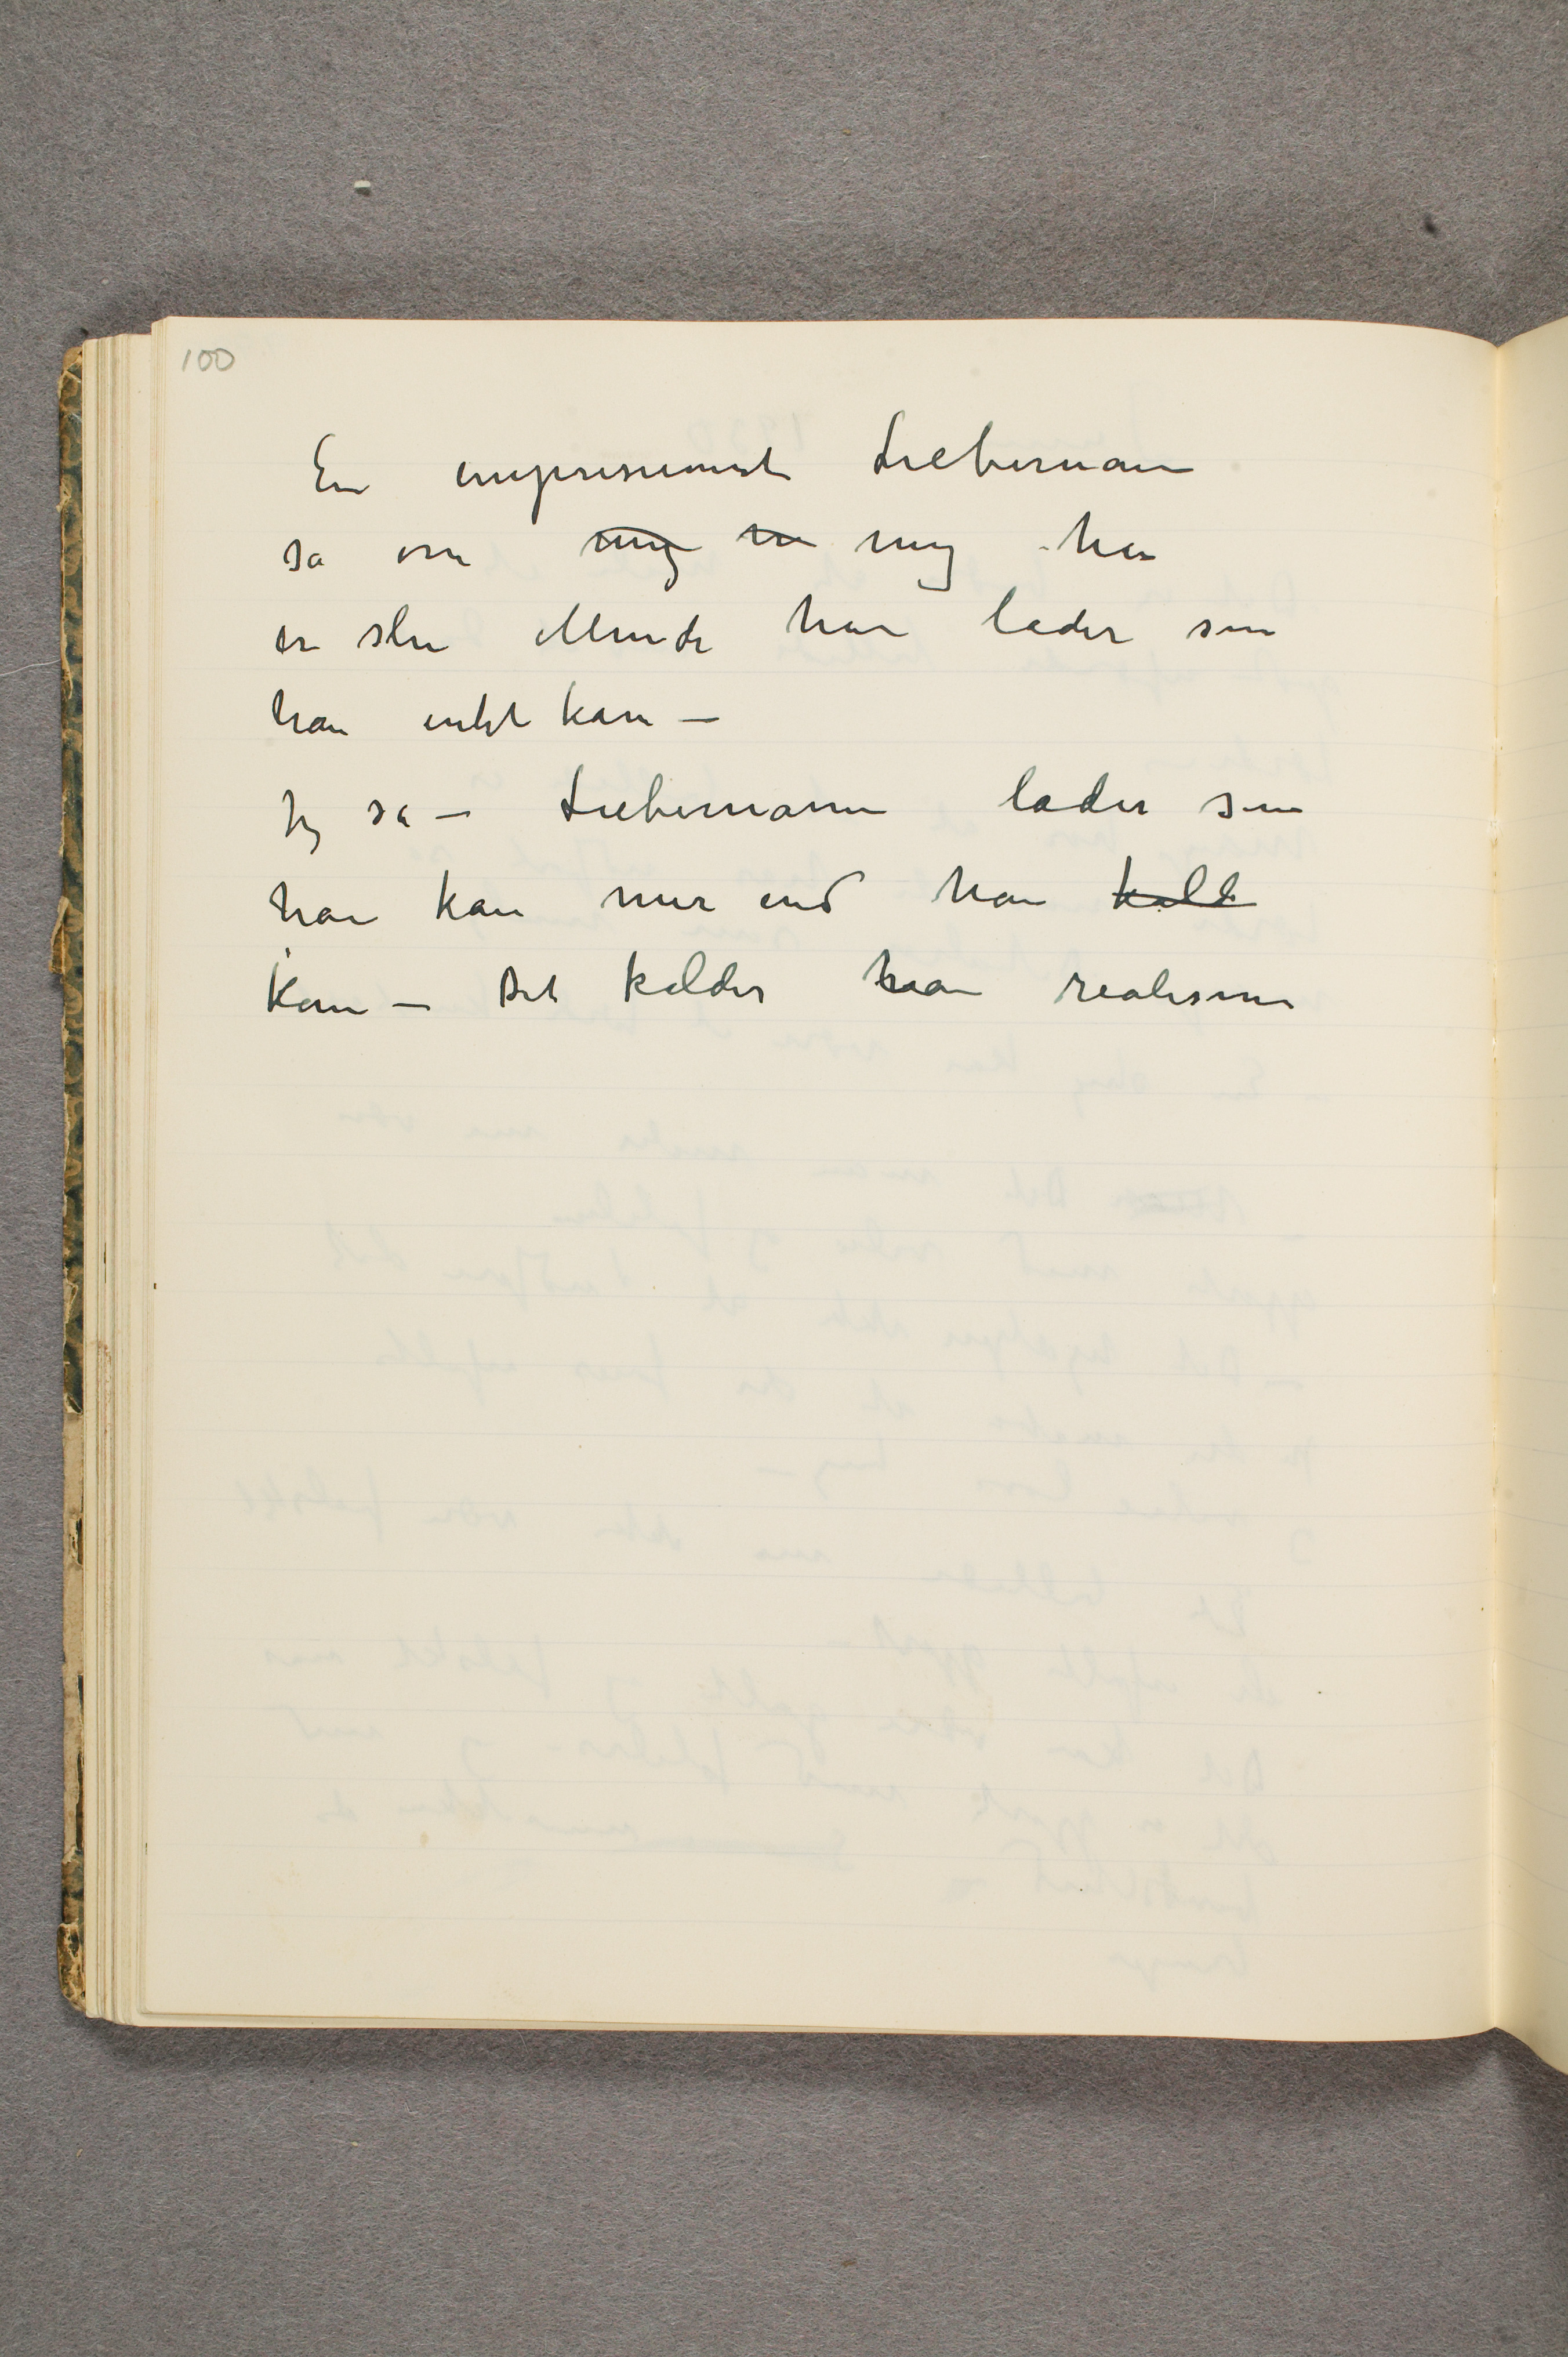 100
En impresionist Lieberman
sa om mig m mig han
er slu ellende han lader som
han intet kan –
Jeg sa – Liebermann lader som
han kan mer end han kald
kan – Det kalder han realisme